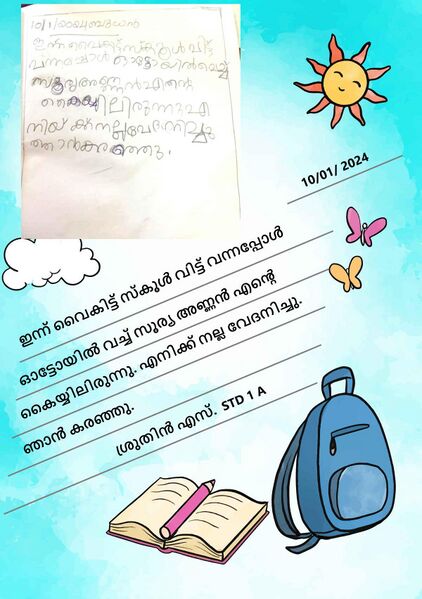 10/1/24 ബുധൻ
ഇന്ന് വൈകുട്ട് സ്കൂൾ വിട്ട്
വന്നപ്പോൾ ഓട്ടോയിൽ വെച്ച്
സൂര്യഅണ്ണൻ എന്റെ
കൈയ്യിലിരുന്നു എ
നിയ്ക്ക് നല്ല വേദനിച്ചു
ഞാൻ കരഞ്ഞു.
10/01/ 2024
ഇന്ന് വൈകിട്ട് സ്കൂൾ വിട്ട് വന്നപ്പോൾ
ഓട്ടോയിൽ വച്ച് സൂര്യ അണ്ണൻ എന്റെ
കൈയ്യിലിരുന്നു. എനിക്ക് നല്ല വേദനിച്ചു.
ഞാൻ കരഞ്ഞു.
ശ്രുതിൻ എസ്. STD 1 A